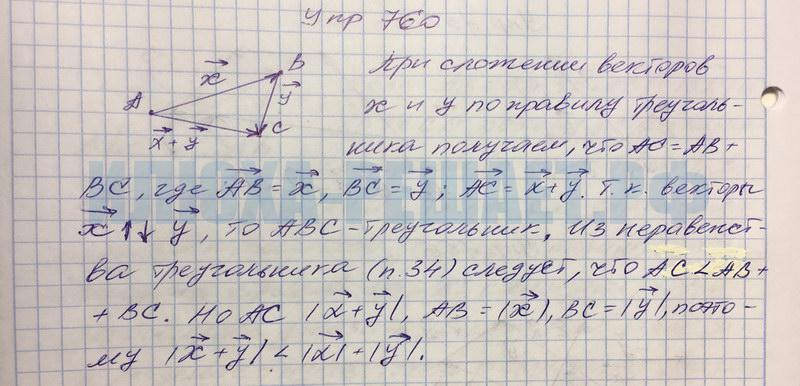 Упр 760
B
x⃗
A
y⃗
C
x⃗ + y⃗
При сложении векторов
x и y по правилу треуголь-
ника получаем, что AC = AB +
BC, где A͞B⃗ = x⃗, B͞C⃗ = y⃗; A͞C⃗ = x⃗ + y⃗. Т. к. векторы
x⃗ ↑↓ y⃗, то ABC - треугольник. Из неравенст-
ва треугольника (п. 34) следует, что AC < AB +
+ BC. Но AC |x⃗ + y⃗|, AB = |x⃗|, BC = |y⃗|, поэто-
му |x⃗ + y⃗| < |x⃗| + |y⃗|.